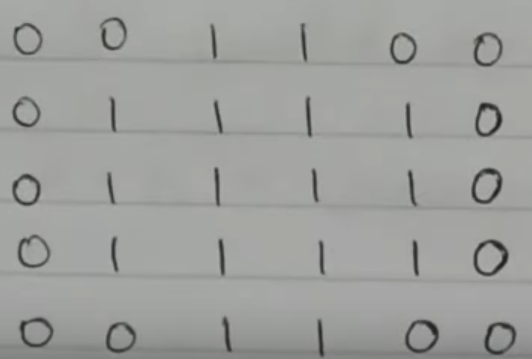 0 0 1 1 0 0
0 1 1 1 1 0
0 1 1 1 1 0
0 1 1 1 1 0
0 0 1 1 0 0